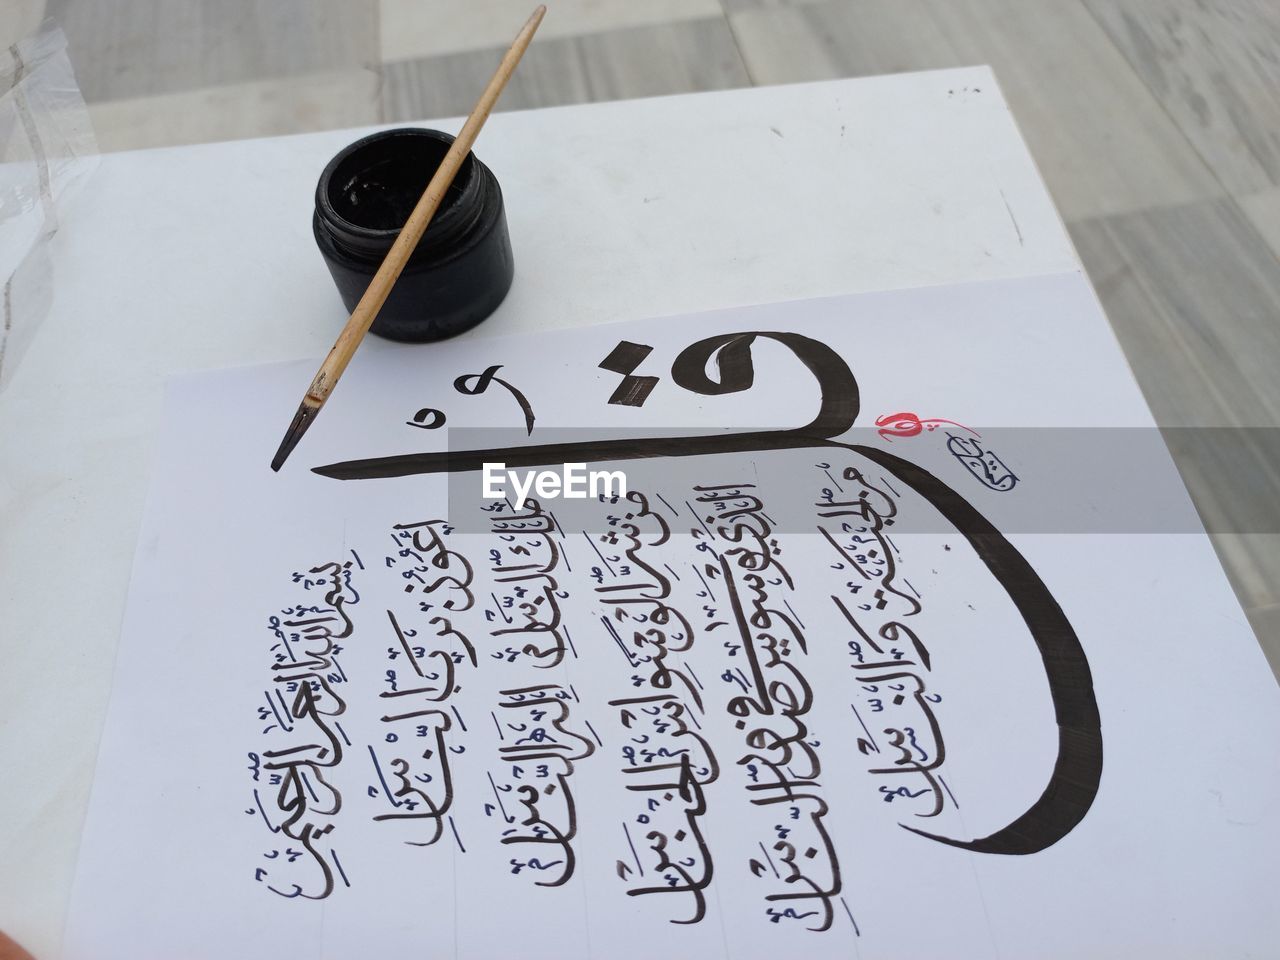 بِسْمِ اللّٰهِ الرَّحْمٰنِ الرَّحِيْمِ
قُلْ
أَعُوْذُ بِرَبِّ النَّاسِ
مَلِكِ النَّاسِ إِلٰهِ النَّاسِ
مِنْ شَرِّ الْوَسْوَاسِ الْخَنَّاسِ
الَّذِي يُوَسْوِسُ فِي صُدُوْرِ النَّاسِ
مِنَ الْجِنَّةِ وَالنَّاسِ
EyeEm